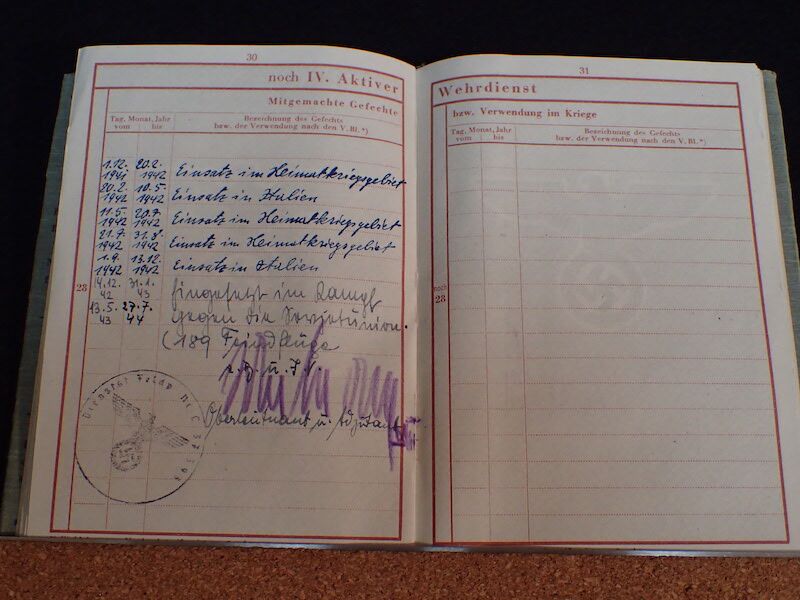 30
noch IV. Aktiver
Mitgemachte Gefechte
Tag, Monat, Jahr
vom bis
Bezeichnung des Gefechts
bzw. der Verwendung nach den V. Bl. *)
1.12. 20.2.
1941 1942 Einsatz im Heimatkriegsgebiet
20.2. 10.5.
1942 1942 Einsatz in Italien
11.5. 20.7.
1942 1942 Einsatz im Heimatkriegsgebiet
21.7. 31.8.
1942 1942 Einsatz im Heimatkriegsgebiet
1.9. 13.12.
1942 1942 Einsatz in Italien
28
14.12. 31.1.
42 43 Eingesetzt im Kampf
13.5. 27.7.
43 44 gegen die Sowjetunion.
(189 Feindflüge
Oberleutnant u. Adjutant
Dienstst. Feldp. Nr.
31
Wehrdienst
bzw. Verwendung im Kriege
Tag, Monat, Jahr
vom bis
Bezeichnung des Gefechts
bzw. der Verwendung nach den V. Bl. *)
noch
28